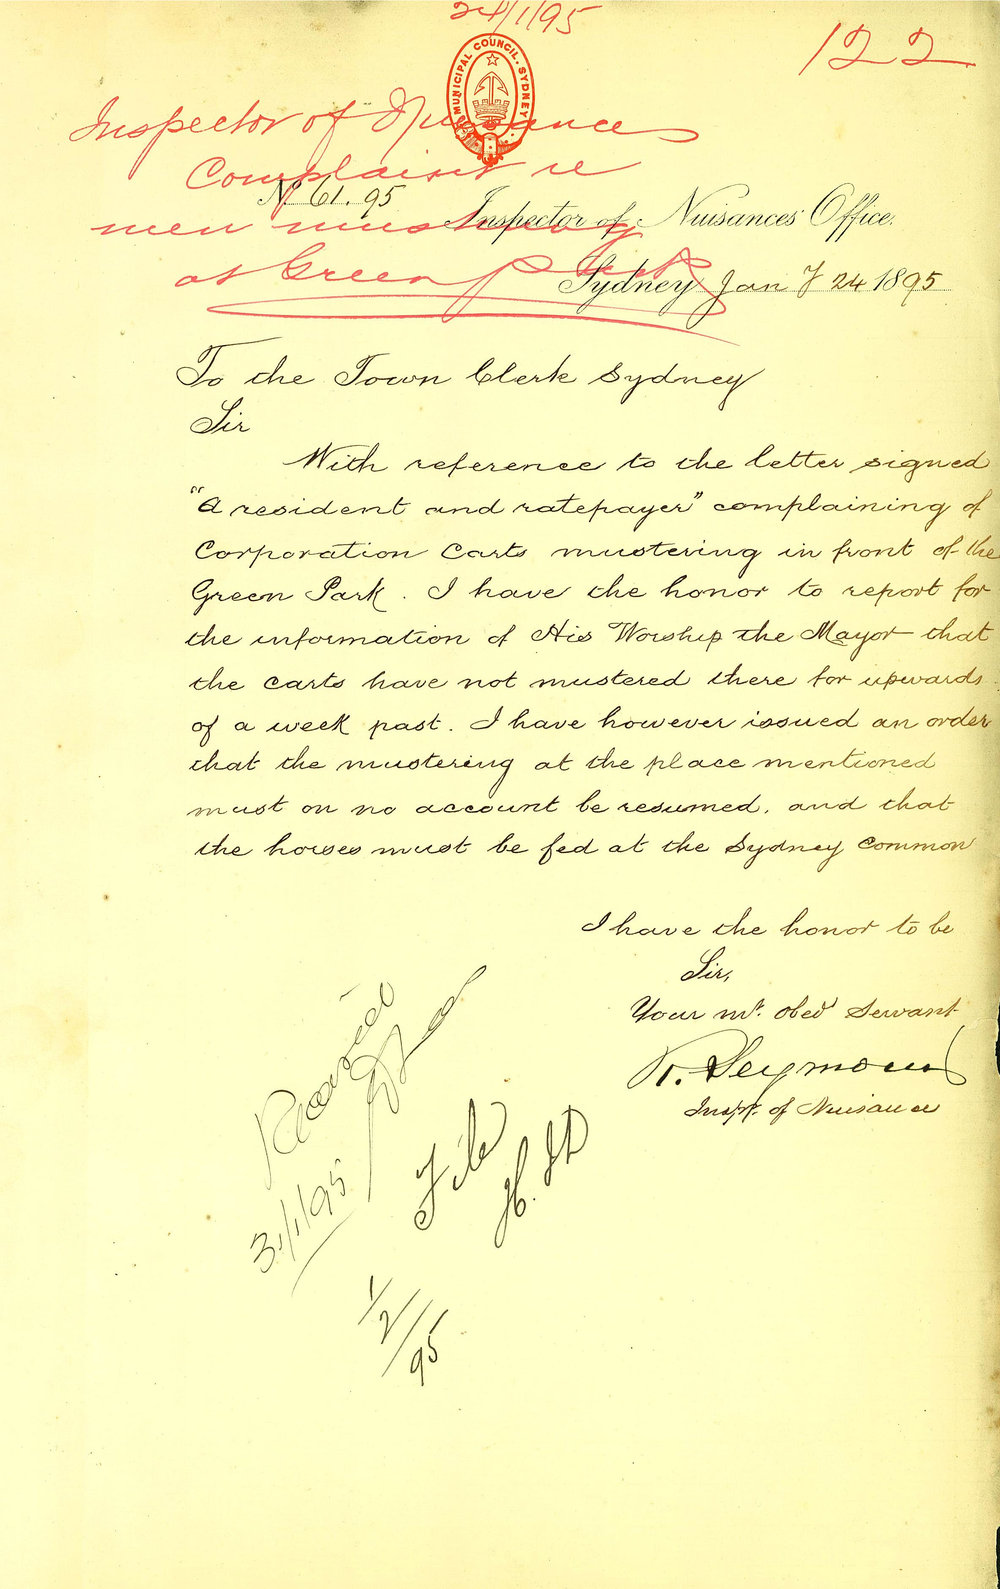 24/1/95
122
MUNICIPAL COUNCIL. SYDNEY
Inspector of Nuisances
Complaint re
No. 61. 95
Inspector of Nuisances Office.
men mustering
at Green Park
Sydney Jany 24 1895
To the Town Clerk Sydney
Sir
With reference to the letter signed
"A resident and ratepayer" complaining of
Corporation Carts mustering in front of the
Green Park. I have the honor to report for
the information of His Worship the Mayor that
the carts have not mustered there for upwards
of a week past. I have however issued an order
that the mustering at the place mentioned
must on no account be resumed, and that
the horses must be fed at the Sydney Common
I have the honor to be
Sir,
Your mt. obed Servant
R. Seymour
Inspr. of Nuisance
Received
31/1/95
File
1/2/95